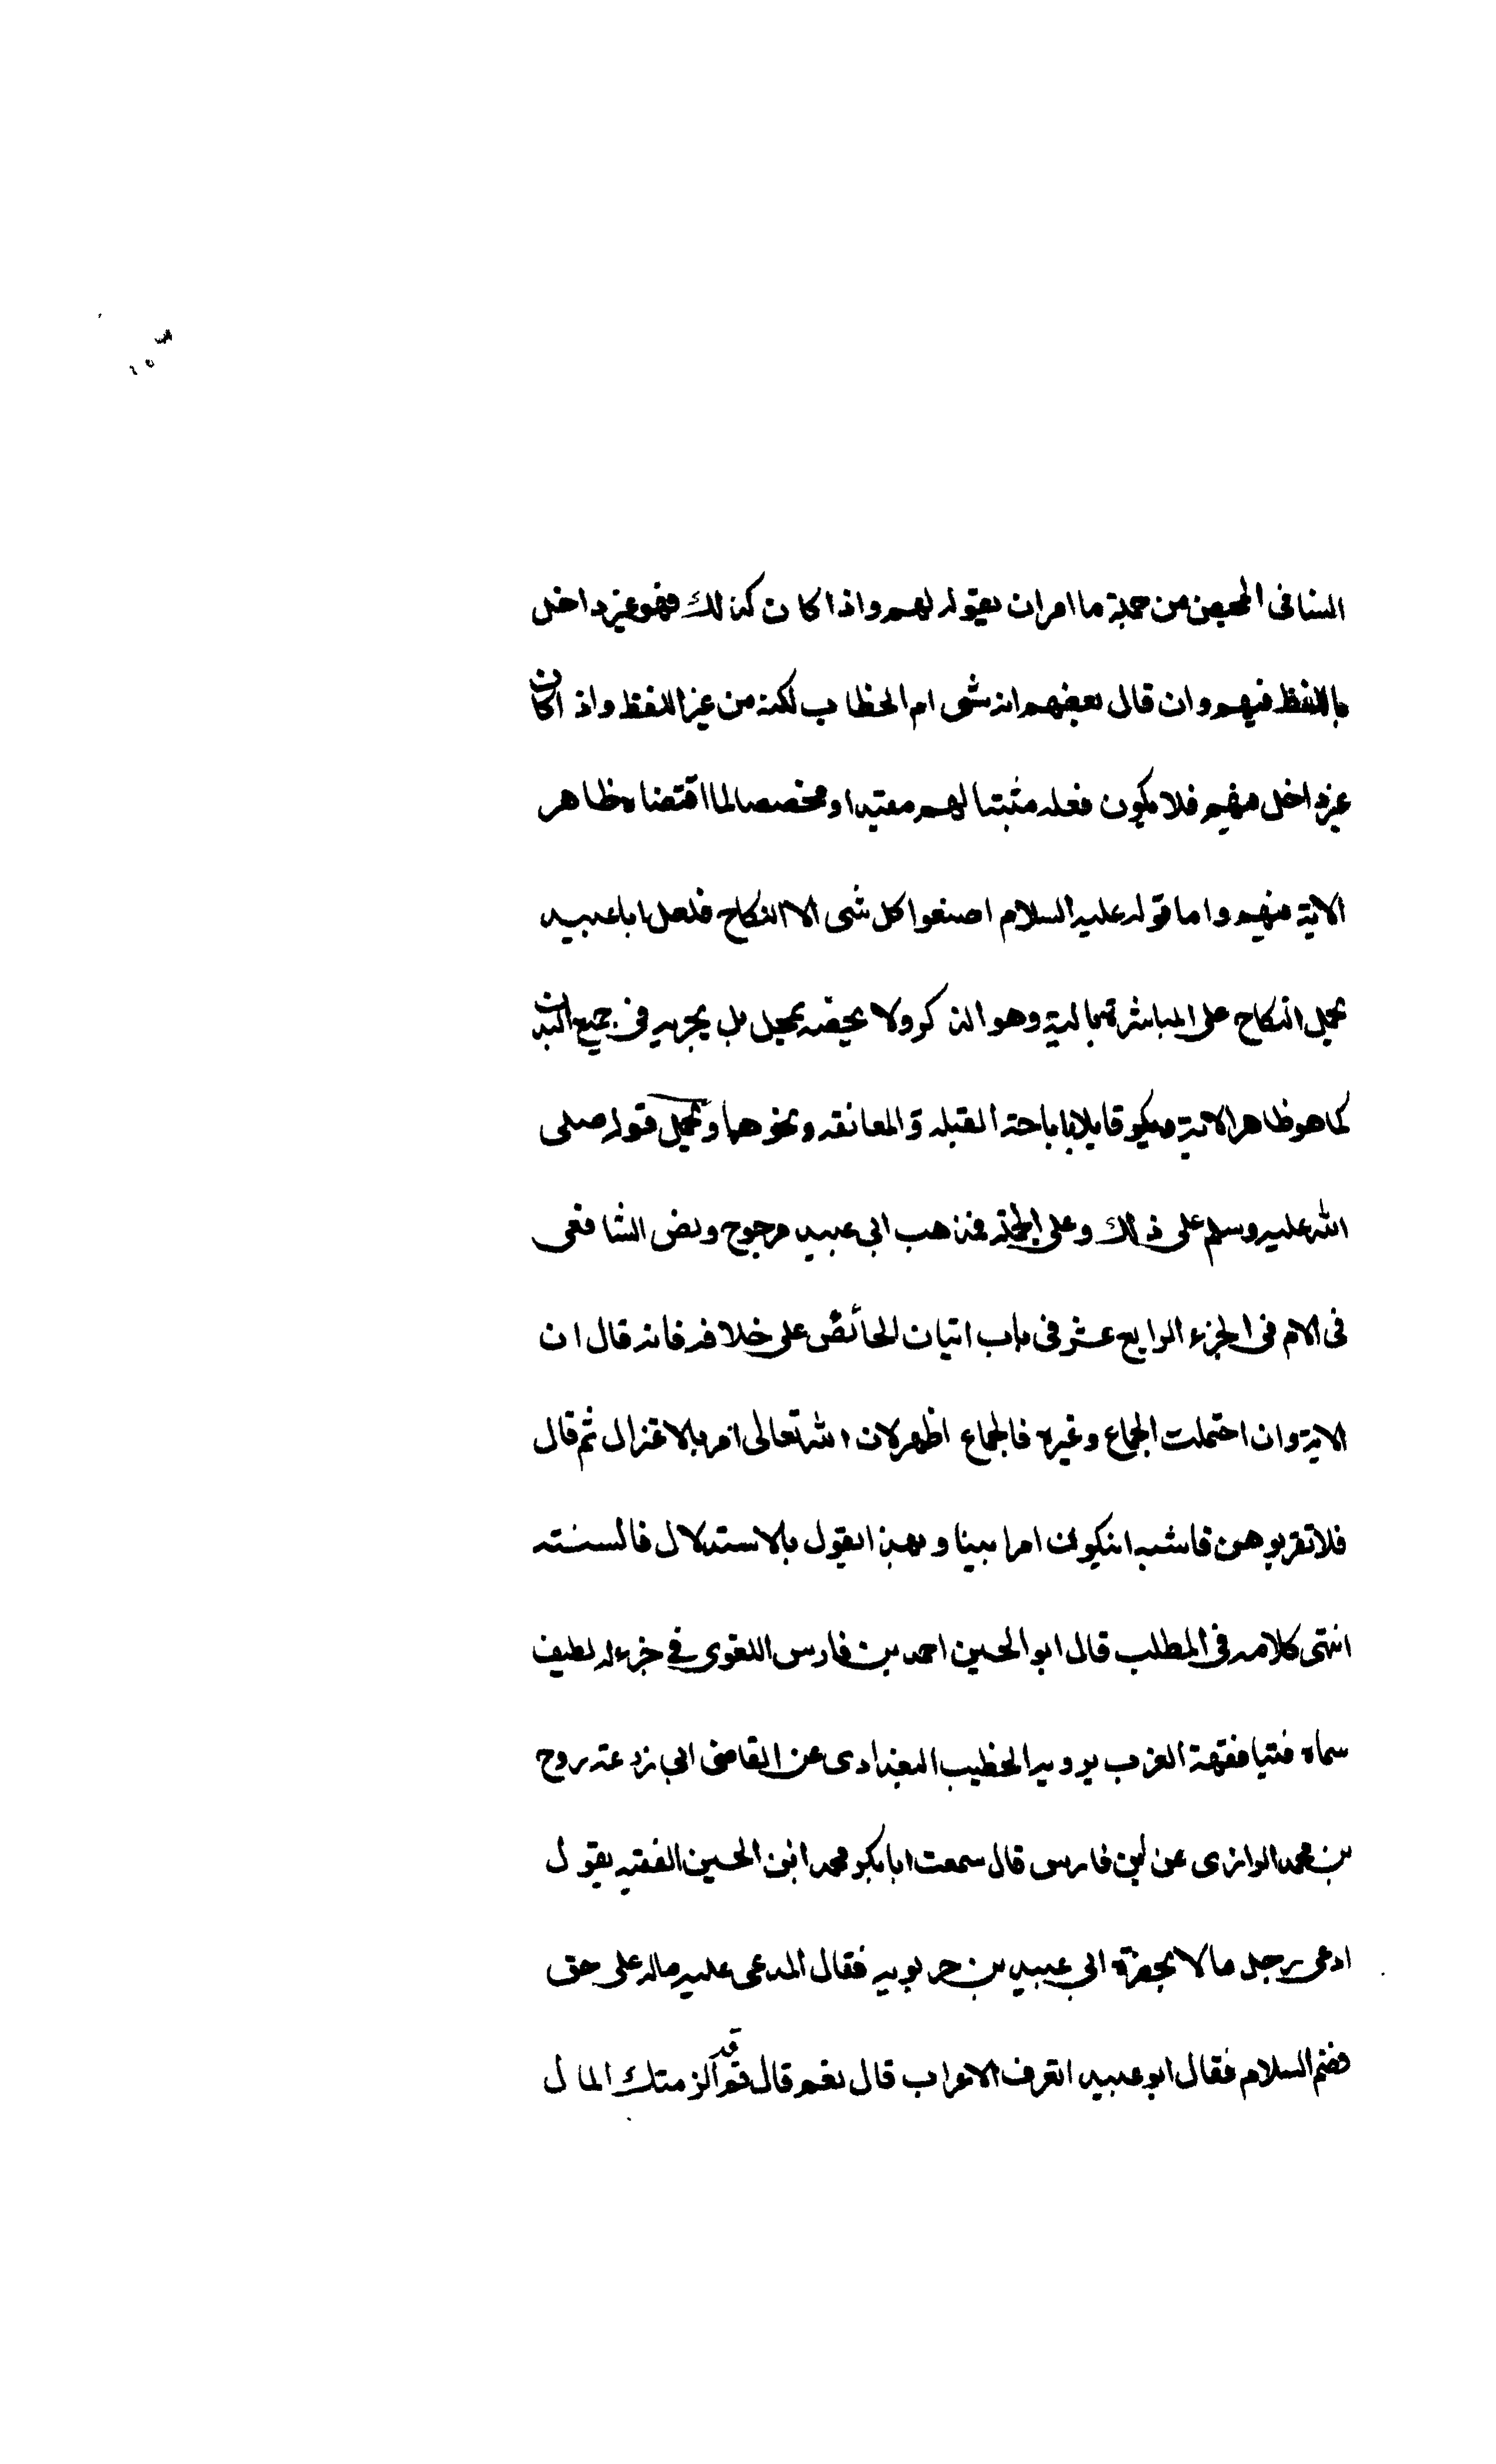 النسا فى المحيض من جملة ما امر ان يقوله لهم واذا كان كذلك فهو غير داخل
باللفظ فيهم وان قال بعضهم انه شمى ام الخطاب لكنه من غير اللفظ واذا كان
غير داخل فيهم فلا يكون فعله مثبتا لهم مقيدا ومخصصا لما اقتضاه ظاهر
الاية فيهم واما قوله عليه السلام اصنعوا كل شى الا النكاح فلعل ابا عبيد
يحمل النكاح على المباشرة بمالية وهو الذكر ولا يخصه بمحل بل يجريه فى جميع البدن
كما هو ظاهر الاية فيكون قايلا باباحة القبلة والمعانقه ونحوهما ويحمل قوله صلى
الله عليه وسلم على ذلك وعلى الجملة فمذهب ابى عبيد مرجوح ونص الشافعى
فى الام فى الجزء الرابع عشر فى باب اتيان الحائض على خلافه فانه قال ان
الاية وان احتملت الجماع وغيره فالجماع اظهر لان الله تعالى امر بالاعتزال ثم قال
فلا تقربوهن فاشبه ان يكون امرا بينا وبهذا نقول بالاستدلال فالسنته
انتهى كلامه فى المطلب قال ابو الحسين احمد بن فارس اللغوى فى جزء له لطيف
سماه فتيا فقهة العرب يرويه الخطيب البغدادى عن القاضى ابى زرعة روح
بن محمد الرازى عن ابن فارس قال سمعت ابا بكر محمد ابن الحسين الفقيه يقول
ادعى رجل مالا بحضرة ابى عبيد بن حربويه فقال المدعى عليه ماله على حق
فضم السلام فقال ابو عبيد اتعرف الاعراب قال نعم قال قم قد الزمتك المال